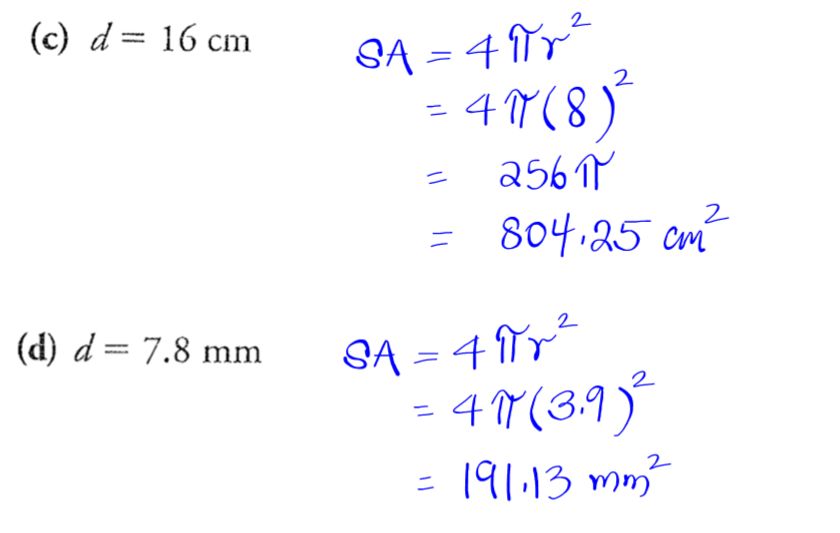 (c) d = 16 cm SA = 4πr²
= 4π(8)²
= 256π
= 804.25 cm²
(d) d = 7.8 mm SA = 4πr²
= 4π(3.9)²
= 191.13 mm²